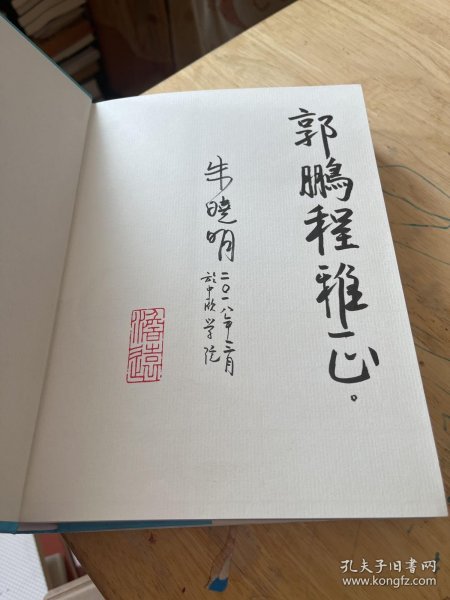 郭鹏程雅正。
朱晓明
二〇一八年二月
於中欧学院
澹远
孔夫子旧书网
www.kongfz.com